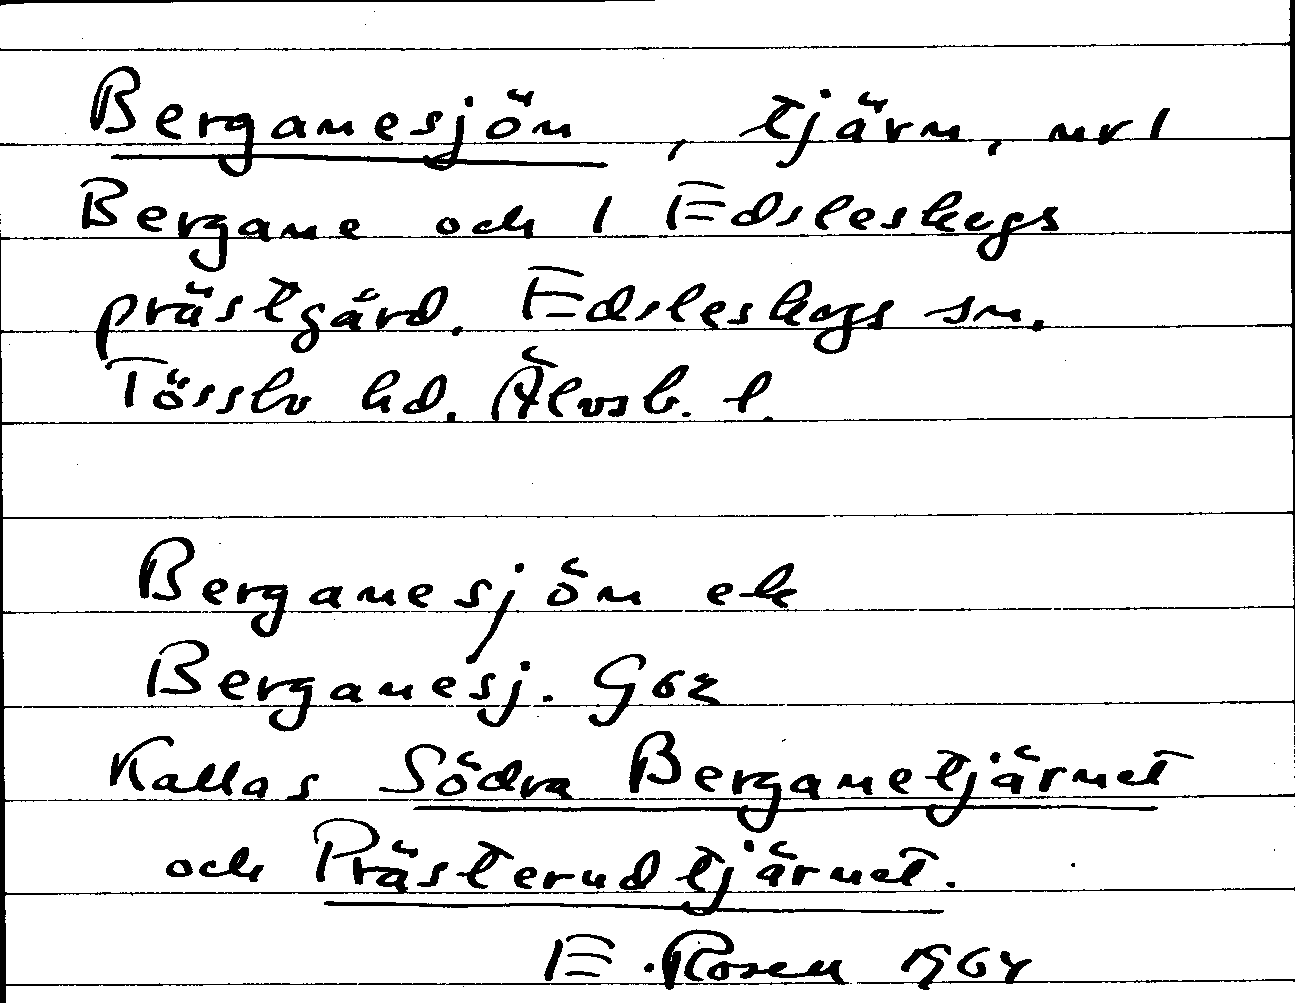 Berganesjön, tjärn, nr 1
Bergane och 1 Edsleskogs
prästgård. Edsleskogs sn.
Tösslv hd. Älvsb. l.
Berganesjön ek
Berganesj. G62
Kallas Södra Berganetjärnet
och Prästerudtjärnet.
E. Rosen 1964